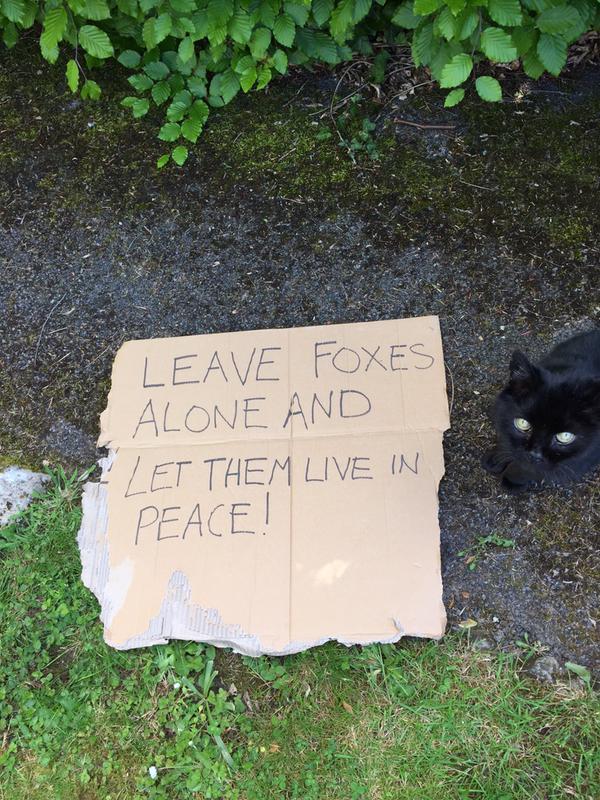 LEAVE FOXES
ALONE AND
LET THEM LIVE IN
PEACE!